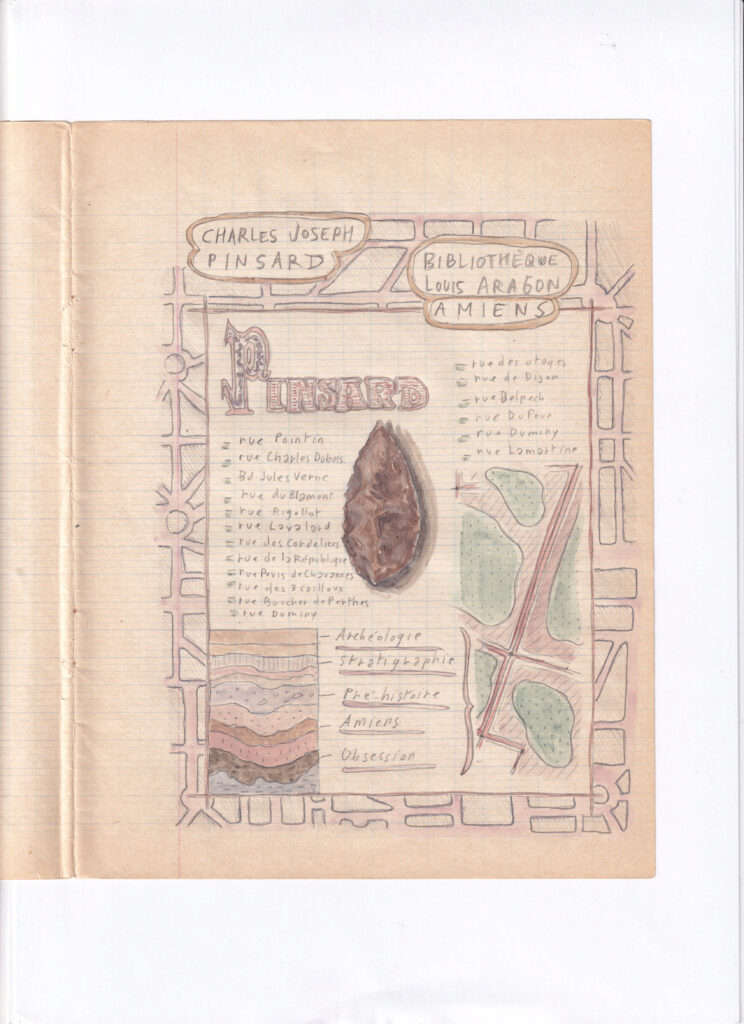 CHARLES JOSEPH
PINSARD
BIBLIOTHÈQUE
LOUIS ARAGON
AMIENS
PINSARD
rue Pointin
rue Charles Dubois
Bd Jules Verne
rue du Blamont
rue Rigollot
rue Lavalard
rue des Cordeliers
rue de la République
rue Puvis de Chavannes
rue des 3 cailloux
rue Boucher de Perthes
rue Duminy
rue des otages
rue de Dijon
rue Delpech
rue Dufour
rue Duminy
rue Lamartine
Archéologie
Stratigraphie
Pré-histoire
Amiens
Obsession